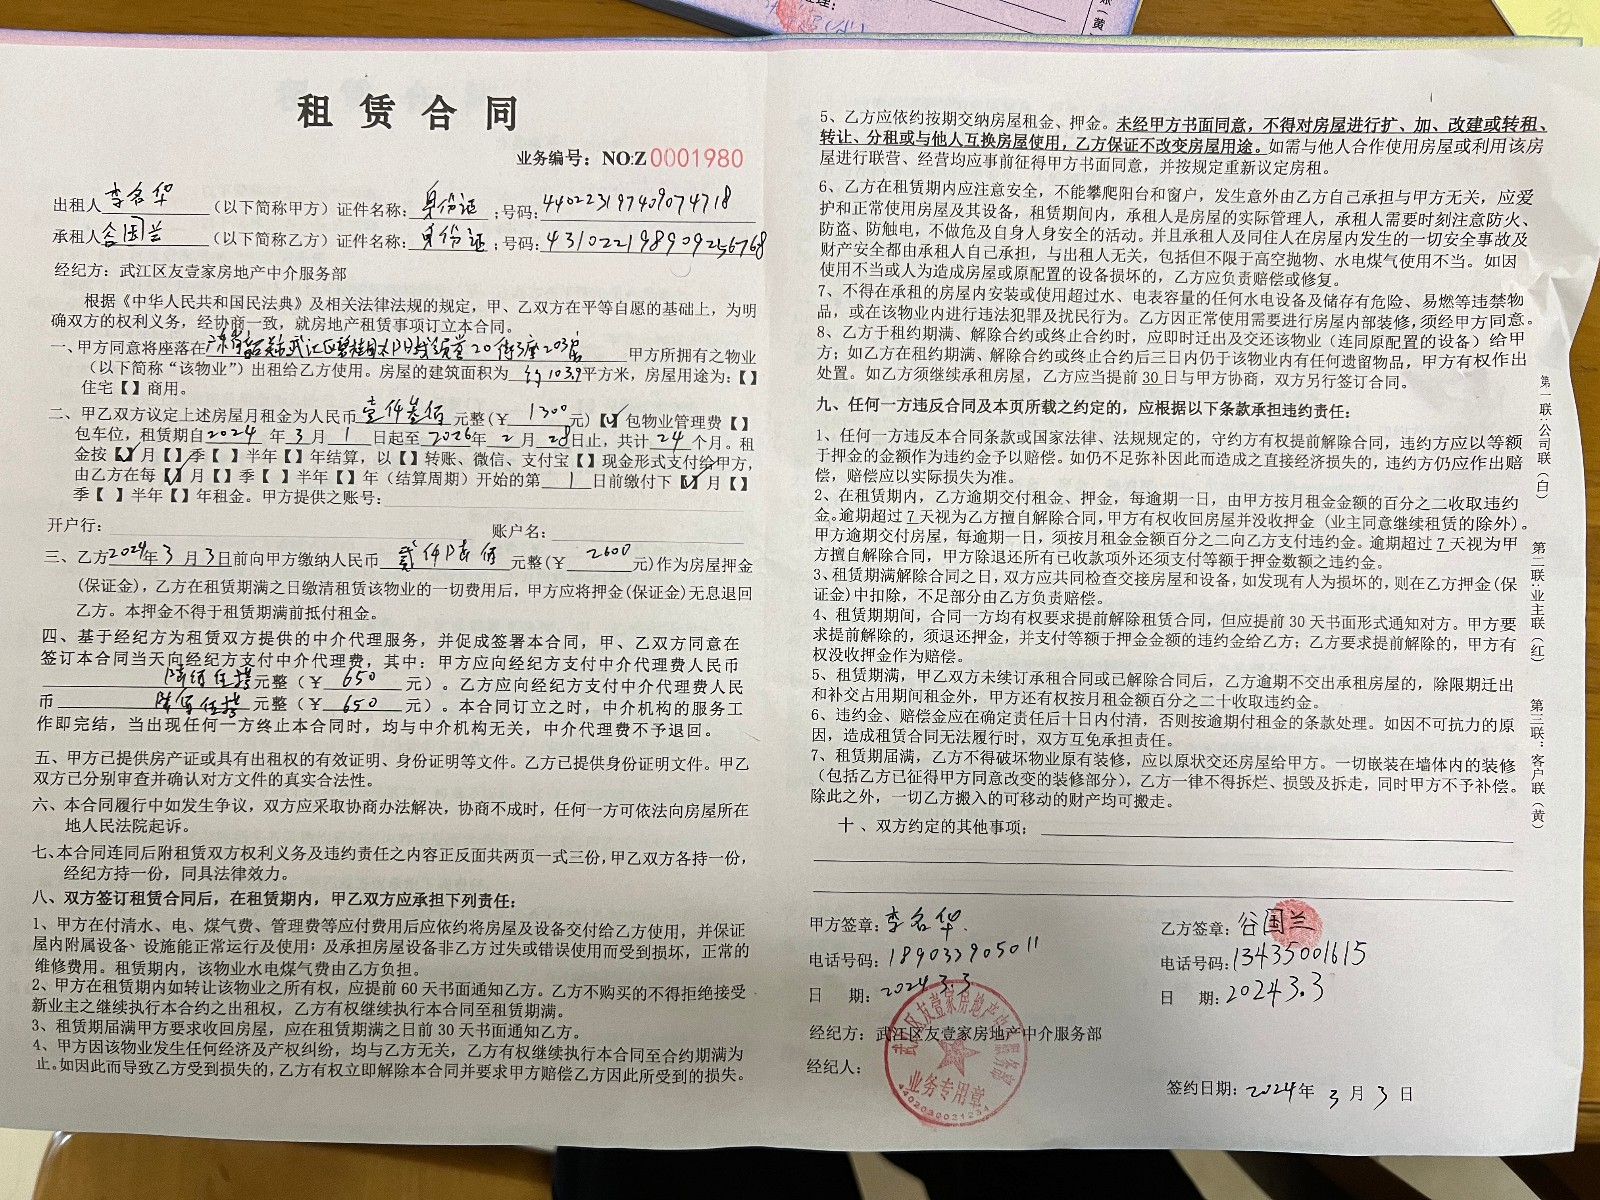 租赁合同
业务编号：NO:Z0001980
出租人李名华（以下简称甲方）证件名称:身份证;号码:440223197409074718
承租人谷国兰（以下简称乙方）证件名称:身份证;号码:431022198909256768
经纪方：武江区友壹家房地产中介服务部
根据《中华人民共和国民法典》及相关法律法规的规定，甲、乙双方在平等自愿的基础上，为明
确双方的权利义务，经协商一致，就房地产租赁事项订立本合同。
一、甲方同意将座落在广东省韶关市武江区碧桂园太阳城 20街3座203房甲方所拥有之物业
（以下简称“该物业”）出租给乙方使用。房屋的建筑面积为约103.9平方米，房屋用途为:【】
住宅【】商用。
二、甲乙双方议定上述房屋月租金为人民币壹仟叁佰元整(￥1300元)【✓】包物业管理费【】
包车位，租赁期自2024年3月1日起至2026年2月28日止，共计24个月。租
金按【✓】月【】季【】半年【】年结算，以【】转账、微信、支付宝【】现金形式支付给甲方，
由乙方在每【✓】月【】季【】半年【】年（结算周期）开始的第1日前缴付下【✓】月【】
季【】半年【】年租金。甲方提供之账号:
开户行: 账户名:
三、乙方2024年3月3日前向甲方缴纳人民币贰仟陆佰元整(￥2600元)作为房屋押金
(保证金)，乙方在租赁期满之日缴清租赁该物业的一切费用后，甲方应将押金(保证金)无息退回
乙方。本押金不得于租赁期满前抵付租金。
四、基于经纪方为租赁双方提供的中介代理服务，并促成签署本合同，甲、乙双方同意在
签订本合同当天向经纪方支付中介代理费，其中：甲方应向经纪方支付中介代理费人民币
陆佰伍拾元整（￥650元）。乙方应向经纪方支付中介代理费人民
币陆佰伍拾元整（￥650元）。本合同订立之时，中介机构的服务工
作即完结，当出现任何一方终止本合同时，均与中介机构无关，中介代理费不予退回。
五、甲方已提供房产证或具有出租权的有效证明、身份证明等文件。乙方已提供身份证明文件。甲乙
双方已分别审查并确认对方文件的真实合法性。
六、本合同履行中如发生争议，双方应采取协商办法解决，协商不成时，任何一方可依法向房屋所在
地人民法院起诉。
七、本合同连同后附租赁双方权利义务及违约责任之内容正反面共两页一式三份，甲乙双方各持一份，
经纪方持一份，同具法律效力。
八、双方签订租赁合同后，在租赁期内，甲乙双方应承担下列责任：
1、甲方在付清水、电、煤气费、管理费等应付费用后应依约将房屋及设备交付给乙方使用，并保证
屋内附属设备、设施能正常运行及使用；及承担房屋设备非乙方过失或错误使用而受到损坏，正常的
维修费用。租赁期内，该物业水电煤气费由乙方负担。
2、甲方在租赁期内如转让该物业之所有权，应提前60天书面通知乙方。乙方不购买的不得拒绝接受
新业主之继续执行本合约之出租权，乙方有权继续执行本合同至租赁期满。
3、租赁期届满甲方要求收回房屋，应在租赁期满之日前30天书面通知乙方。
4、甲方因该物业发生任何经济及产权纠纷，均与乙方无关，乙方有权继续执行本合同至合约期满为
止。如因此而导致乙方受到损失的，乙方有权立即解除本合同并要求甲方赔偿乙方因此所受到的损失。
5、乙方应依约按期交纳房屋租金、押金。未经甲方书面同意，不得对房屋进行扩、加、改建或转租、
转让、分租或与他人互换房屋使用，乙方保证不改变房屋用途。如需与他人合作使用房屋或利用该房
屋进行联营、经营均应事前征得甲方书面同意，并按规定重新议定房租。
6、乙方在租赁期内应注意安全，不能攀爬阳台和窗户，发生意外由乙方自己承担与甲方无关，应爱
护和正常使用房屋及其设备，租赁期间内，承租人是房屋的实际管理人，承租人需要时刻注意防火、
防盗、防触电，不做危及自身人身安全的活动。并且承租人及同住人在房屋内发生的一切安全事故及
财产安全都由承租人自己承担，与出租人无关，包括但不限于高空抛物、水电煤气使用不当。如因
使用不当或人为造成房屋或原配置的设备损坏的，乙方应负责赔偿或修复。
7、不得在承租的房屋内安装或使用超过水、电表容量的任何水电设备及储存有危险、易燃等违禁物
品，或在该物业内进行违法犯罪及扰民行为。乙方因正常使用需要进行房屋内部装修，须经甲方同意。
8、乙方于租约期满、解除合约或终止合约时，应即时迁出及交还该物业（连同原配置的设备）给甲
方；如乙方在租约期满、解除合约或终止合约后三日内仍于该物业内有任何遗留物品，甲方有权作出
处置。如乙方须继续承租房屋，乙方应当提前30日与甲方协商，双方另行签订合同。
九、任何一方违反合同及本页所载之约定的，应根据以下条款承担违约责任：
1、任何一方违反本合同条款或国家法律、法规规定的，守约方有权提前解除合同，违约方应以等额
于押金的金额作为违约金予以赔偿。如仍不足弥补因此而造成之直接经济损失的，违约方仍应作出赔
偿，赔偿应以实际损失为准。
2、在租赁期内，乙方逾期交付租金、押金，每逾期一日，由甲方按月租金金额的百分之二收取违约
金。逾期超过7天视为乙方擅自解除合同，甲方有权收回房屋并没收押金（业主同意继续租赁的除外）。
甲方逾期交付房屋，每逾期一日，须按月租金金额百分之二向乙方支付违约金。逾期超过7天视为甲
方擅自解除合同，甲方除退还所有已收款项外还须支付等额于押金数额之违约金。
3、租赁期满解除合同之日，双方应共同检查交接房屋和设备，如发现有人为损坏的，则在乙方押金(保
证金)中扣除，不足部分由乙方负责赔偿。
4、租赁期期间，合同一方均有权要求提前解除租赁合同，但应提前30天书面形式通知对方。甲方要
求提前解除的，须退还押金，并支付等额于押金金额的违约金给乙方；乙方要求提前解除的，甲方有
权没收押金作为赔偿。
5、租赁期满，甲乙双方未续订承租合同或已解除合同后，乙方逾期不交出承租房屋的，除限期迁出
和补交占用期间租金外，甲方还有权按月租金额百分之二十收取违约金。
6、违约金、赔偿金应在确定责任后十日内付清，否则按逾期付租金的条款处理。如因不可抗力的原
因，造成租赁合同无法履行时，双方互免承担责任。
7、租赁期届满，乙方不得破坏物业原有装修，应以原状交还房屋给甲方。一切嵌装在墙体内的装修
（包括乙方已征得甲方同意改变的装修部分），乙方一律不得拆烂、损毁及拆走，同时甲方不予补偿。
除此之外，一切乙方搬入的可移动的财产均可搬走。
十、双方约定的其他事项:
甲方签章:李名华
电话号码:18903390501
日 期:2024.3.3
乙方签章:谷国兰
电话号码:13435001615
日 期:2024.3.3
经纪方：武江区友壹家房地产中介服务部
经纪人:
签约日期:2024年3月3日
武江区友壹家房地产中介服务部
业务专用章
第一联:公司联(白)
第二联:业主联(红)
第三联：客户联(黄)